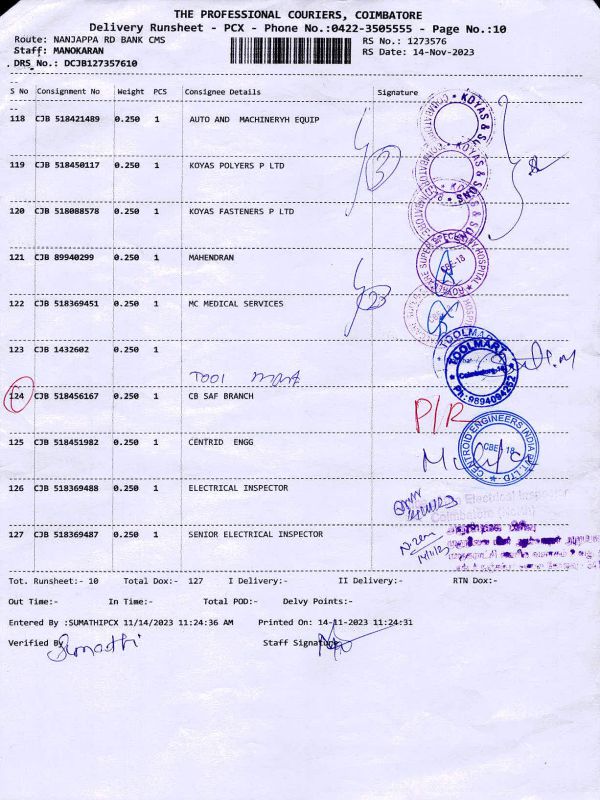 THE PROFESSIONAL COURIERS, COIMBATORE
Delivery Runsheet - PCX - Phone No.:0422-3505555 - Page No.:10
Route: NANJAPPA RD BANK CMS RS No.: 1273576
Staff: MANOKARAN RS Date: 14-Nov-2023
DRS No.: DCJB127357610
S No Consignment No Weight PCS Consignee Details Signature
118 CJB 518421489 0.250 1 AUTO AND MACHINERYH EQUIP
119 CJB 518450117 0.250 1 KOYAS POLYERS P LTD
120 CJB 518088578 0.250 1 KOYAS FASTENERS P LTD
121 CJB 89940299 0.250 1 MAHENDRAN
122 CJB 518369451 0.250 1 MC MEDICAL SERVICES
123 CJB 1432602 0.250 1
TOOL MART
124 CJB 518456167 0.250 1 CB SAF BRANCH P/R
125 CJB 518451982 0.250 1 CENTRID ENGG
126 CJB 518369488 0.250 1 ELECTRICAL INSPECTOR
127 CJB 518369487 0.250 1 SENIOR ELECTRICAL INSPECTOR
KOYAS & SONS
CBE-18
TOOLMART
Coimbatore-18
PH: 9894094252
CENTROID ENGINEERS INDIA PVT LTD
CBE-18
Electrical Inspector
Coimbatore (North)
Tot. Runsheet:- 10 Total Dox:- 127 I Delivery:- II Delivery:- RTN Dox:-
Out Time:- In Time:- Total POD:- Delvy Points:-
Entered By :SUMATHIPCX 11/14/2023 11:24:36 AM Printed On: 14-11-2023 11:24:31
Verified By Sumathi Staff Signature